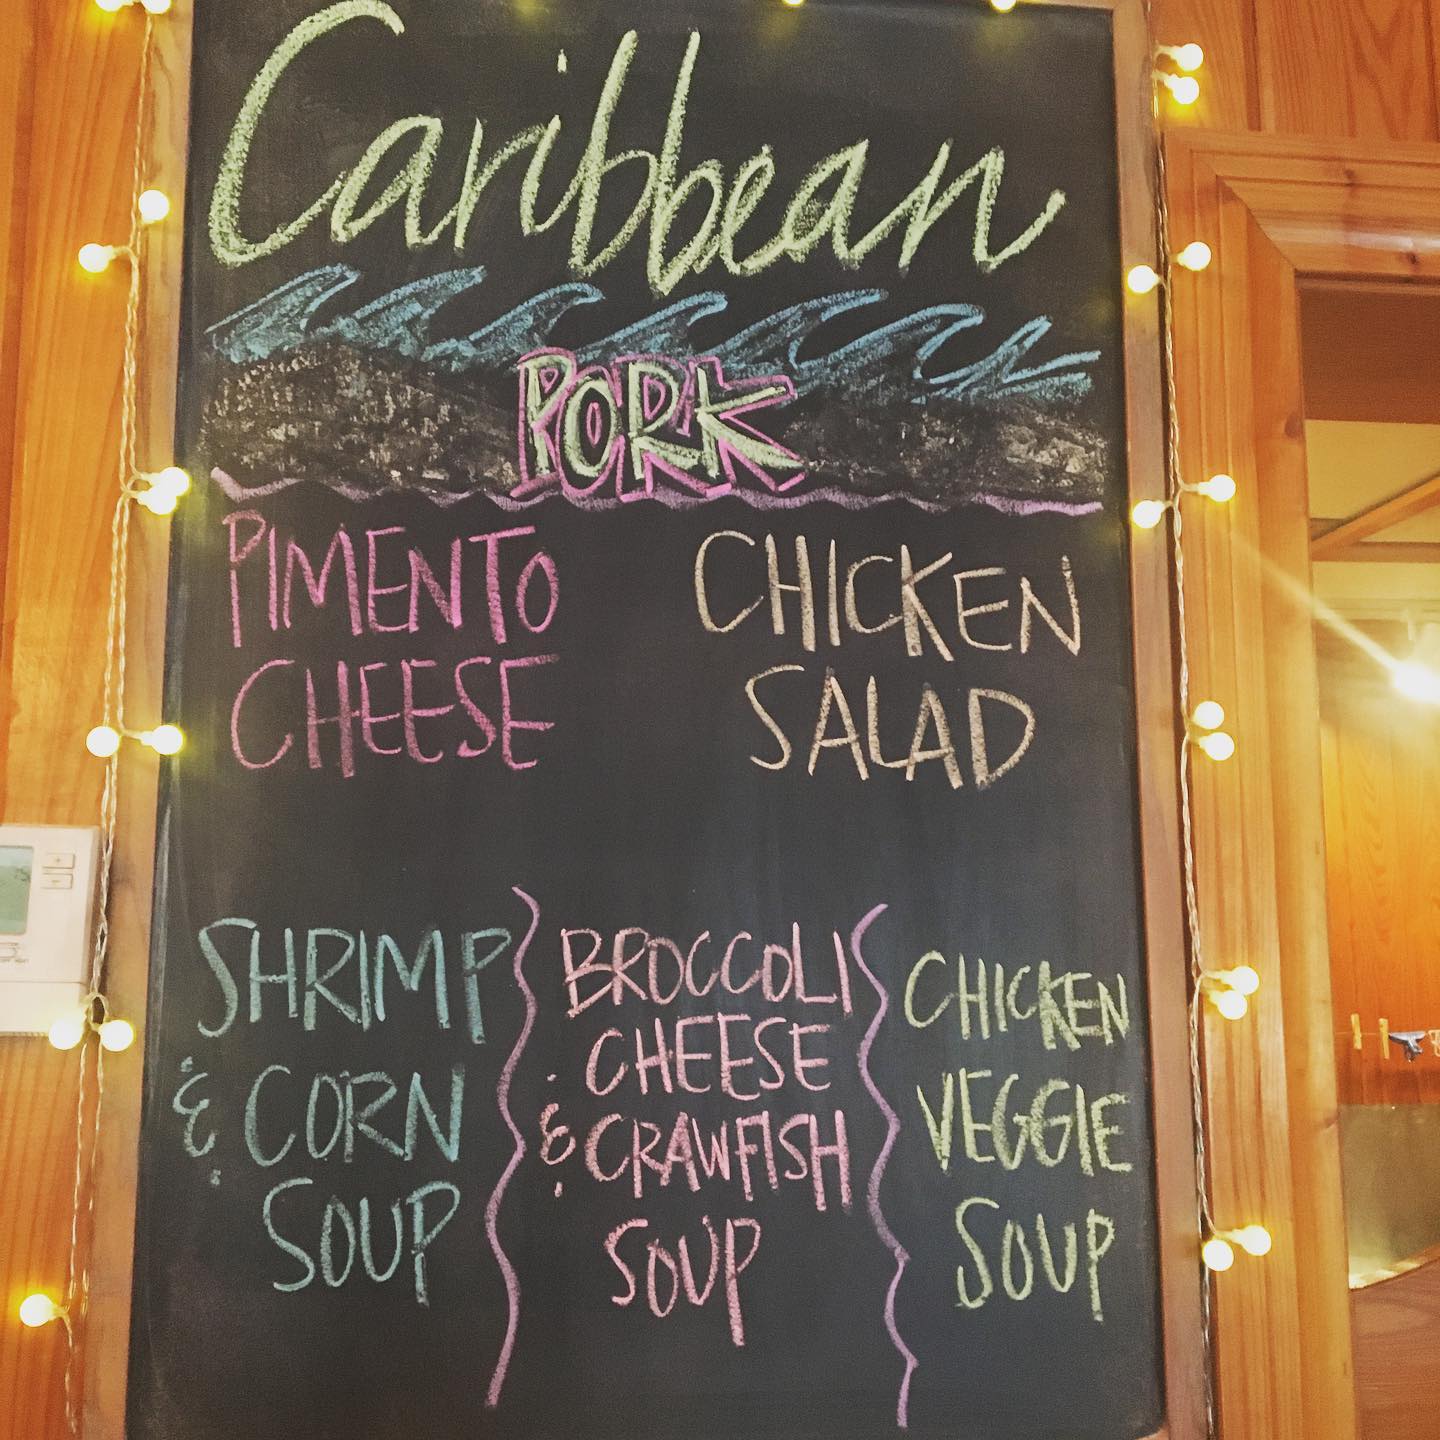 Caribbean
PORK
PIMENTO
CHEESE
CHICKEN
SALAD
SHRIMP
& CORN
SOUP
BROCCOLI
CHEESE
& CRAWFISH
SOUP
CHICKEN
VEGGIE
SOUP